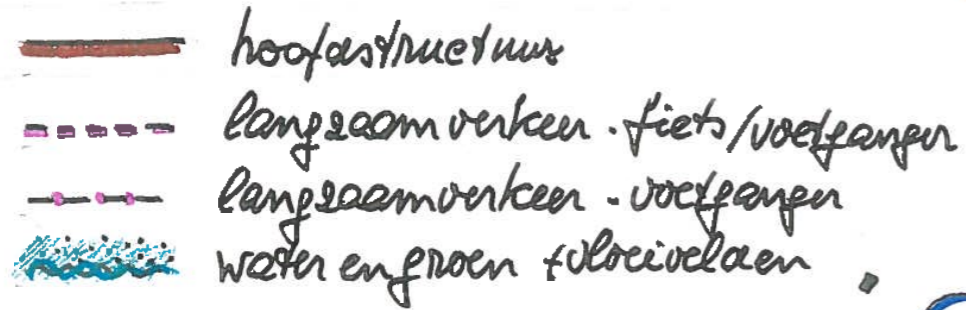 hoofdstructuur
langzaam verkeer . fiets/voetganger
langzaamverkeer . voetganger
water en groen + vloeivelden